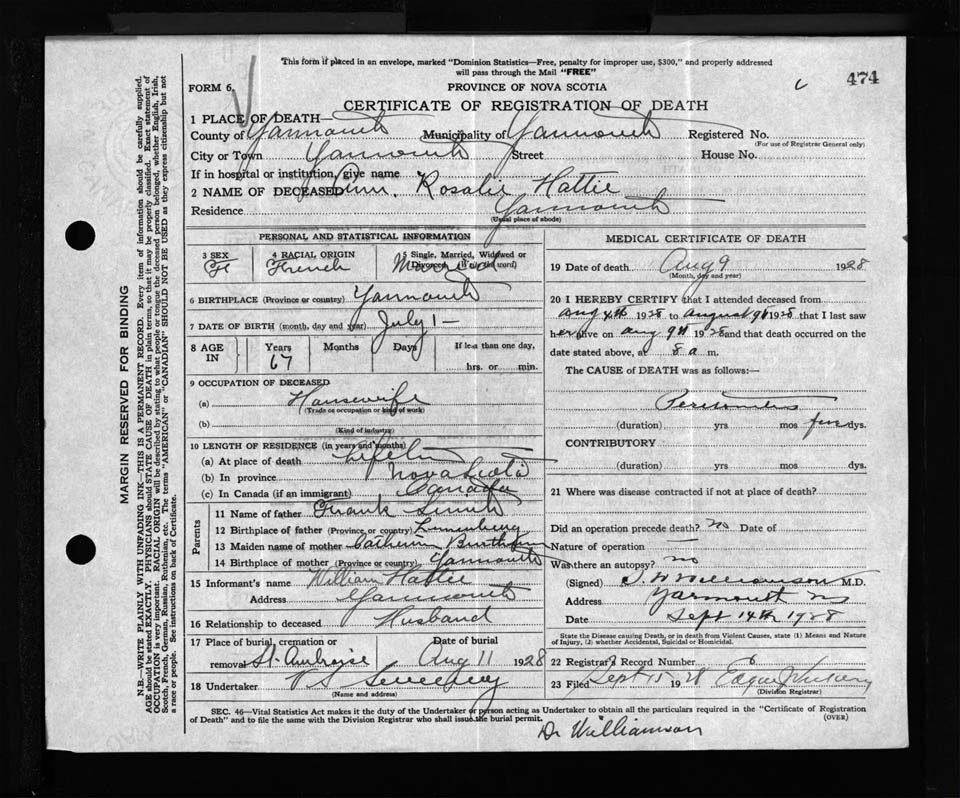 This form if placed in an envelope, marked "Dominion Statistics—Free, penalty for improper use, $300," and properly addressed
will pass through the Mail "FREE"
474
FORM 6.
PROVINCE OF NOVA SCOTIA
CERTIFICATE OF REGISTRATION OF DEATH
1 PLACE OF DEATH—
County of Yarmouth Municipality of Yarmouth Registered No.
(For use of Registrar General only)
City or Town Yarmouth Street House No.
If in hospital or institution, give name
2 NAME OF DECEASED Ann. Rosalie Hattie
Residence Yarmouth
(Usual place of abode)
PERSONAL AND STATISTICAL INFORMATION
3 SEX 4 RACIAL ORIGIN 5 Single, Married, Widowed or
Divorced (write the word)
French Married
6 BIRTHPLACE (Province or country) Yarmouth
7 DATE OF BIRTH (month, day and year) July 1—
8 AGE IN Years Months Days If less than one day,
67 hrs. or min.
9 OCCUPATION OF DECEASED
(a) Housewife
(Trade or occupation or kind of work)
(b)
(Kind of industry)
10 LENGTH OF RESIDENCE (in years and months)
(a) At place of death
(b) In province Nova Scotia
(c) In Canada (if an immigrant) Canada
Parents
11 Name of father Frank Smith
12 Birthplace of father (Province or country) Lunenburg
13 Maiden name of mother
14 Birthplace of mother (Province or country) Yarmouth
15 Informant's name William Hattie
Address Yarmouth
16 Relationship to deceased Husband
17 Place of burial, cremation or Date of burial
removal St. Ambroise Aug 11 1928
18 Undertaker V S Sweeney
(Name and address)
MEDICAL CERTIFICATE OF DEATH
19 Date of death Aug 9 1928
(Month, day and year)
20 I HEREBY CERTIFY that I attended deceased from
Aug 4th 1928 to August 9th 1928 that I last saw
her alive on Aug 9th 1928 and that death occurred on the
date stated above, at 8 a m.
The CAUSE of DEATH was as follows:—
Peritonitis
(duration) yrs mos five dys.
CONTRIBUTORY
(duration) yrs mos dys.
21 Where was disease contracted if not at place of death?
Did an operation precede death? no Date of
Nature of operation —
Was there an autopsy? no
(Signed) Williamson M.D.
Address Yarmouth NS
Date Sept 14th 1928
State the Disease causing Death, or in death from Violent Causes, state (1) Means and Nature
of Injury, (2) whether Accidental, Suicidal or Homicidal.
22 Registrar's Record Number
23 Filed Sept 15 1928
(Division Registrar)
SEC. 46—Vital Statistics Act makes it the duty of the Undertaker or person acting as Undertaker to obtain all the particulars required in the "Certificate of Registration
of Death" and to file the same with the Division Registrar who shall issue the burial permit. (OVER)
Dr Williamson
MARGIN RESERVED FOR BINDING
N.B.—WRITE PLAINLY WITH UNFADING INK—THIS IS A PERMANENT RECORD. Every item of information should be carefully supplied.
AGE should be stated EXACTLY. PHYSICIANS should STATE CAUSE OF DEATH in plain terms, so that it may be properly classified. Exact statement of
OCCUPATION is very important. RACIAL ORIGIN will be described by stating to what people or tongue the deceased person belonged, whether English, Irish,
Scotch, French, German, Russian, Ruthenian, etc. The terms "AMERICAN" or "CANADIAN" SHOULD NOT BE USED as they express citizenship but not
a race or people. See instructions on back of Certificate.